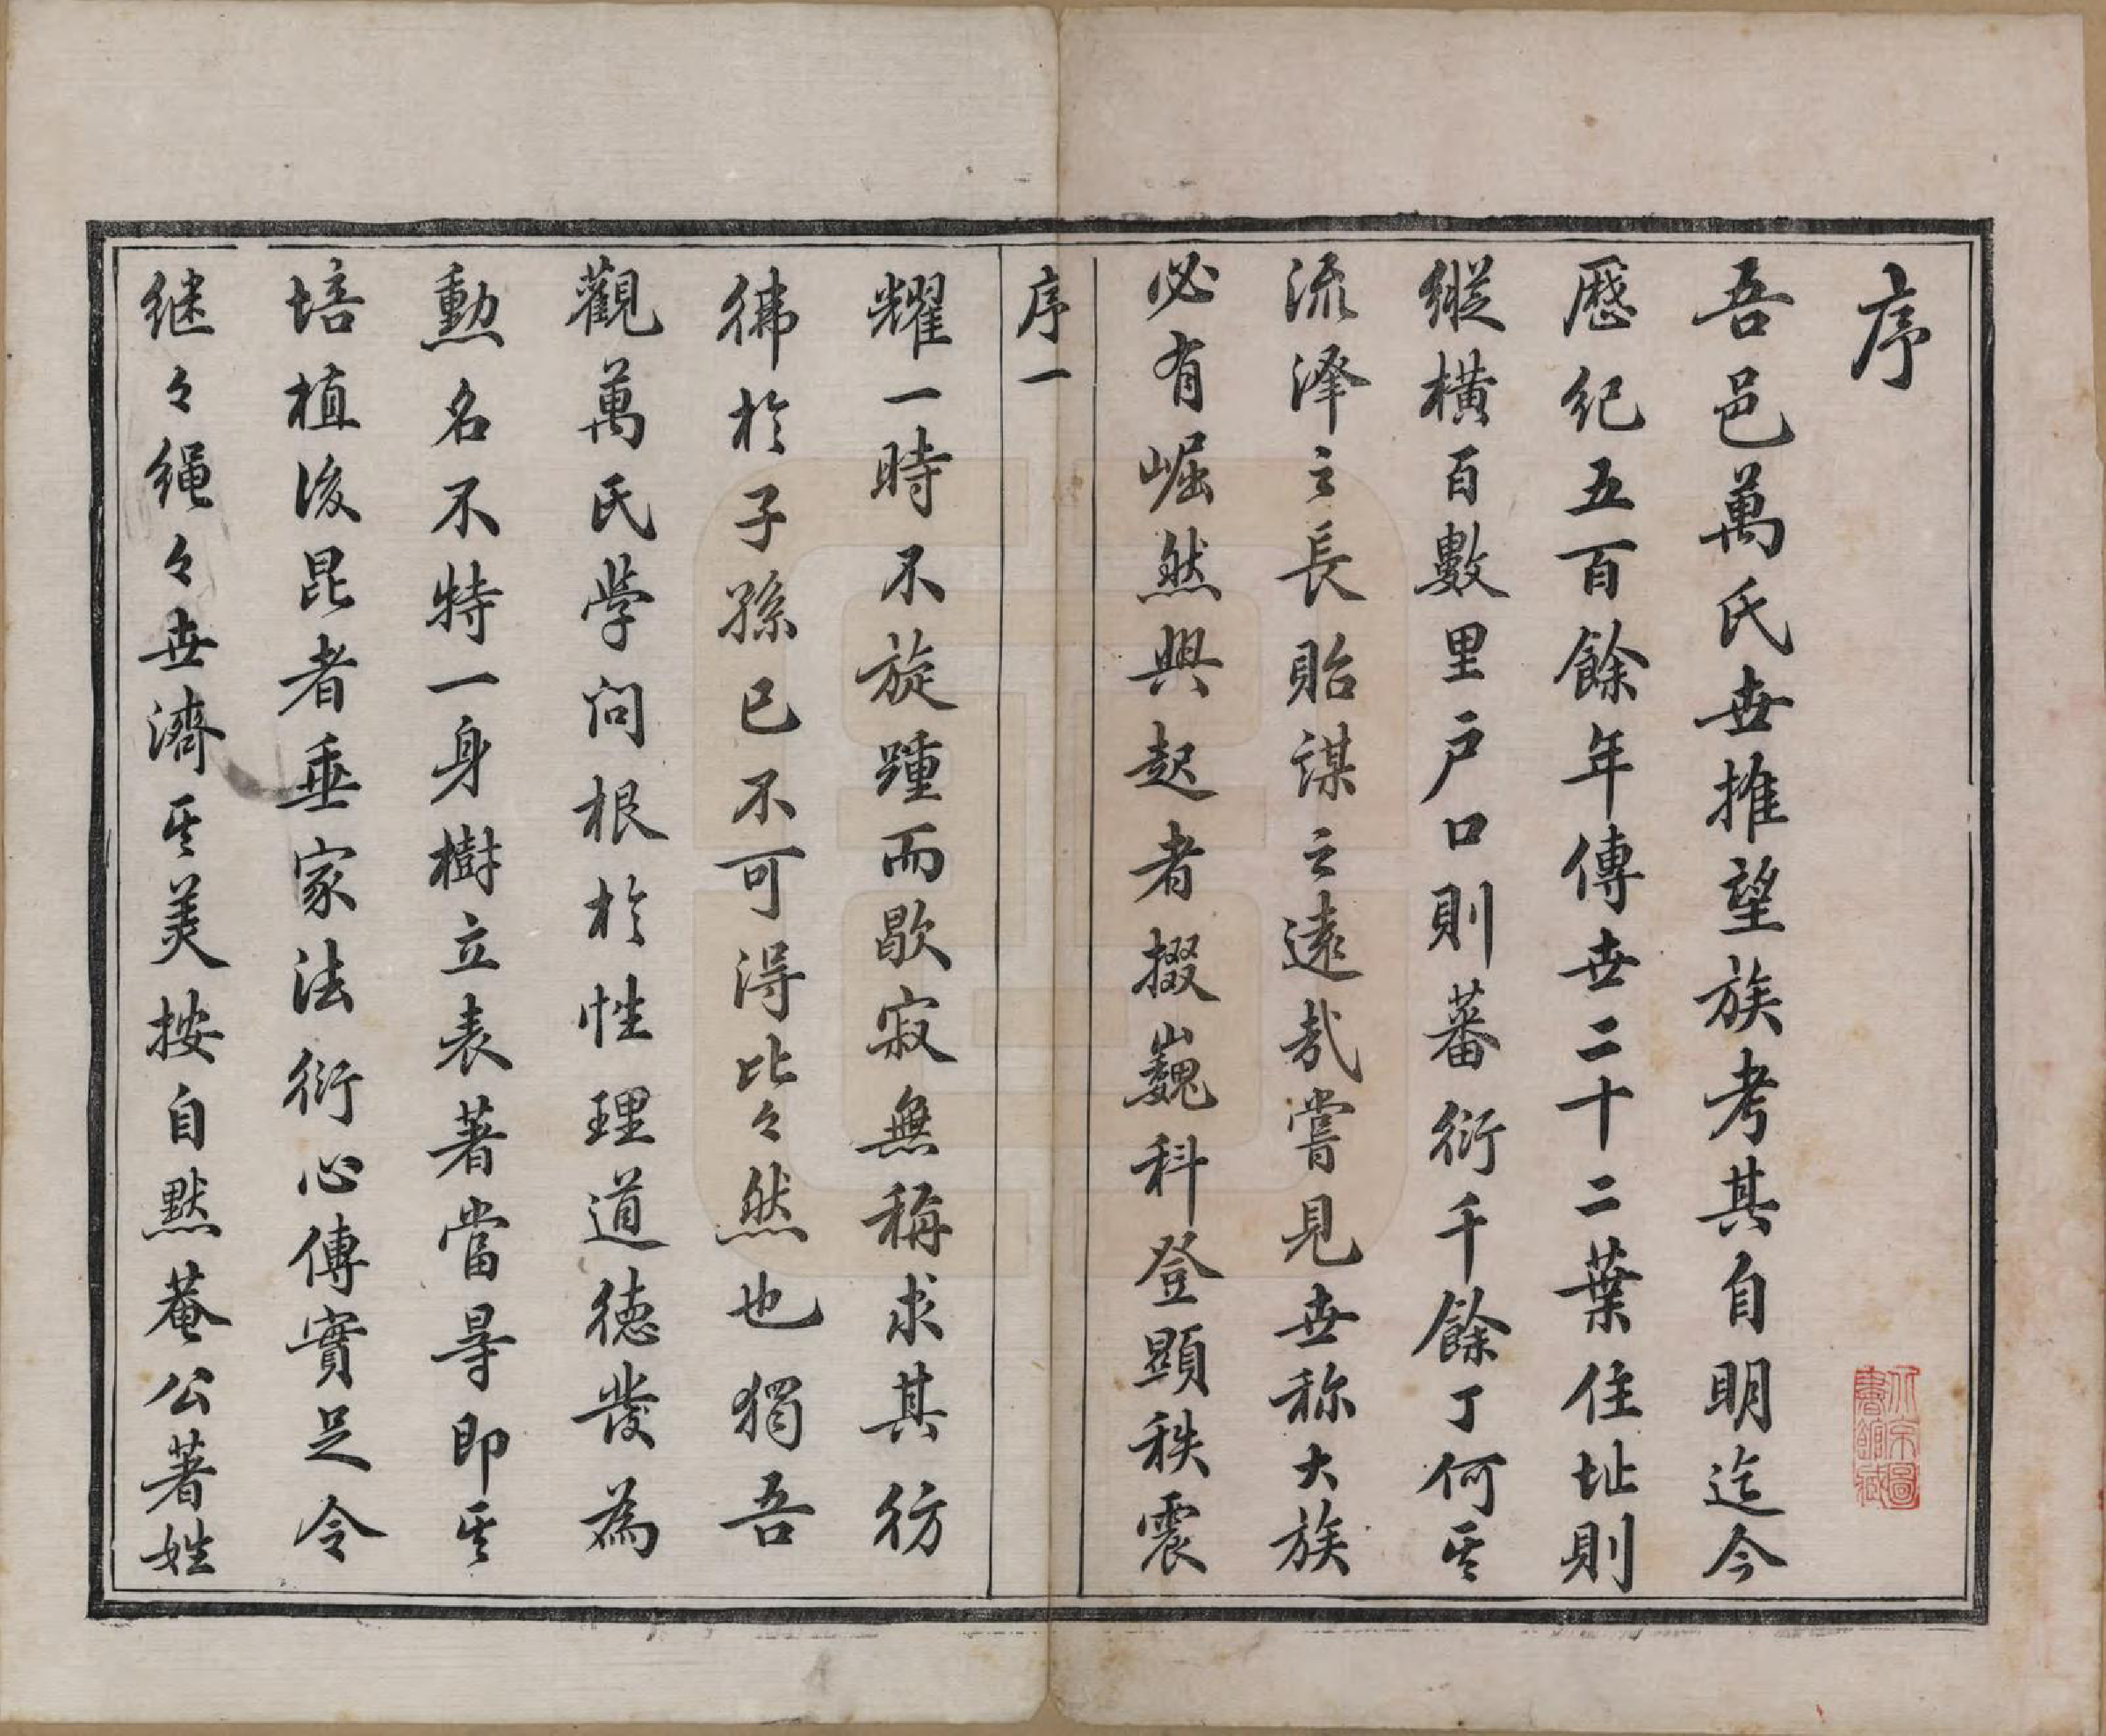 序
吾邑萬氏世推望族考其自明迄今
歷紀五百餘年傳世二十二葉住址則
縱橫百數里户口則蕃衍千餘丁何其
流泽之長貽謀之遠哉嘗見世称大族
必有崛然興起者掇巍科登顯秩震
序一
耀一時不旋踵而歇寂無稱求其彷
彿於子孫已不可得比々然也獨吾
觀萬氏学问根於性理道德發為
勲名不特一身樹立表著當時即其
培植後昆者垂家法衍心傳實足令
继々绳々世濟其美按自黙菴公著姓
北京圖書館藏